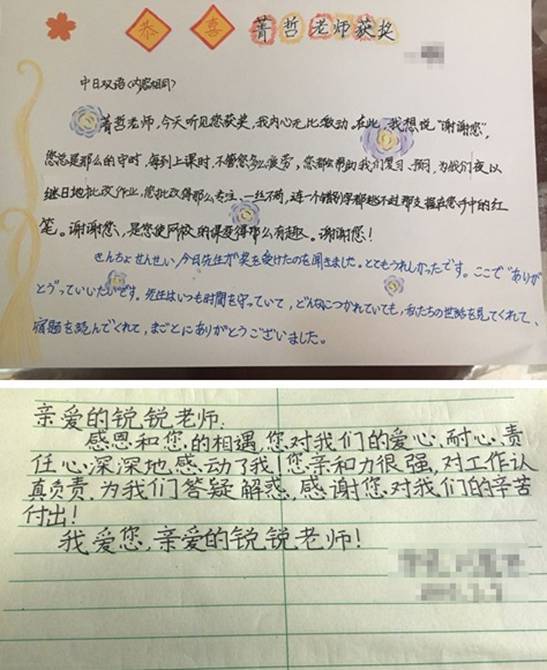 恭 喜 菁哲老师获奖
中日双语(内容相同)
菁哲老师,今天听见您获奖,我内心无比激动。在此,我想说"谢谢您",
您总是那么的守时,每到上课时,不管您多么疲劳,您都会帮助我们复习、预习,为我们夜以
继日地批改作业,您批改得那么专注、一丝不苟,连一个错别字都逃不过那支握在您手中的红
笔。谢谢您,是您使网校的课变得那么有趣。谢谢您!
せんせい,今日先生が奖を受けたのを聞きました。とてもうれしかったです。ここで"ありが
とうっていいたいです。先生はいつも時間を守っていて,どんなにつかれていても,私たちの世話を見てくれて、
宿題を読んでくれて,まことにありがとうございました。
亲爱的锐锐老师:
感恩和您的相遇,您对我们的爱心、耐心、责
任心深深地感动了我!您亲和力很强,对工作认
真负责,为我们答疑解惑,感谢您对我们的辛苦
付出!
我爱您,亲爱的锐锐老师!